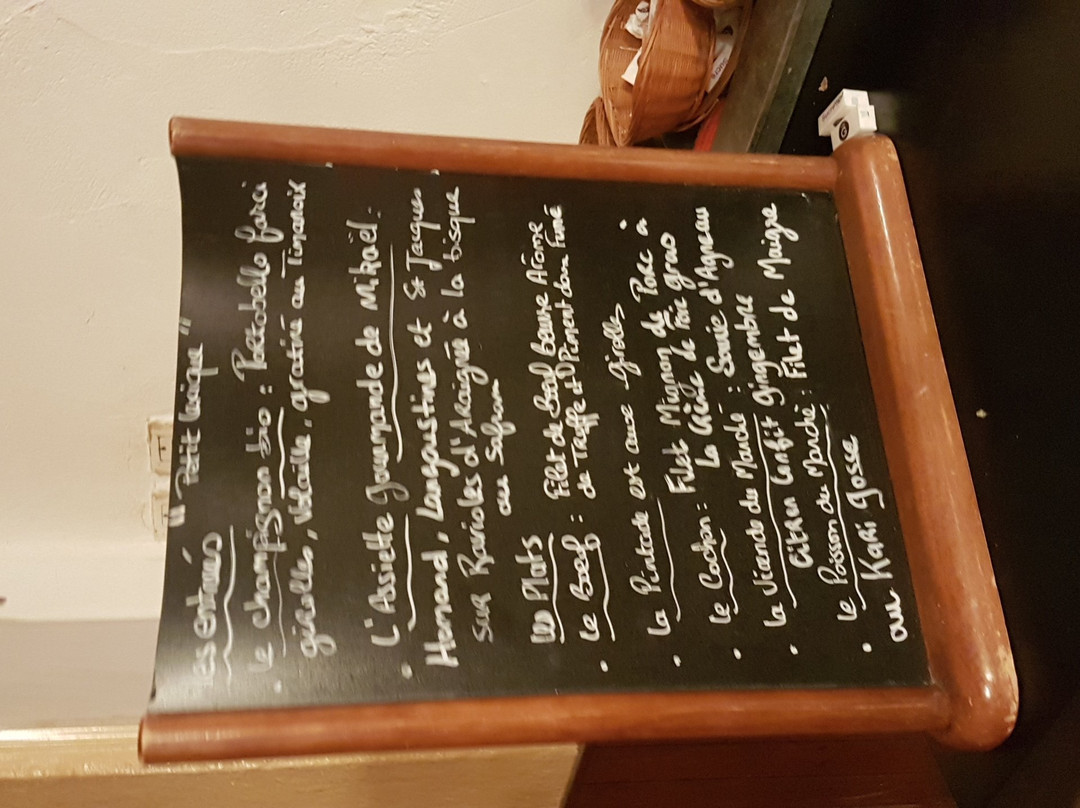 les entrées " Petit Lexique "
le champignon bio : Portobello farci
girolles, volaille, gratiné au Timanoix
L'Assiette gourmande de Mikaël :
Homard, Langoustines et St Jacques
sur Ravioles d'Araignée à la bisque
au Safran
les Plats
le Bœuf : Filet de Bœuf Beurre Arôme
de Truffe et Piment doux Fumé
la Pintade est aux girolles
le Cochon : Filet Mignon de Porc à
la Crème de Foie gras
la Viande du Marché : Souris d'Agneau
Citron Confit gingembre
le Poisson du Marché : Filet de Maigre
au Kari Gosse